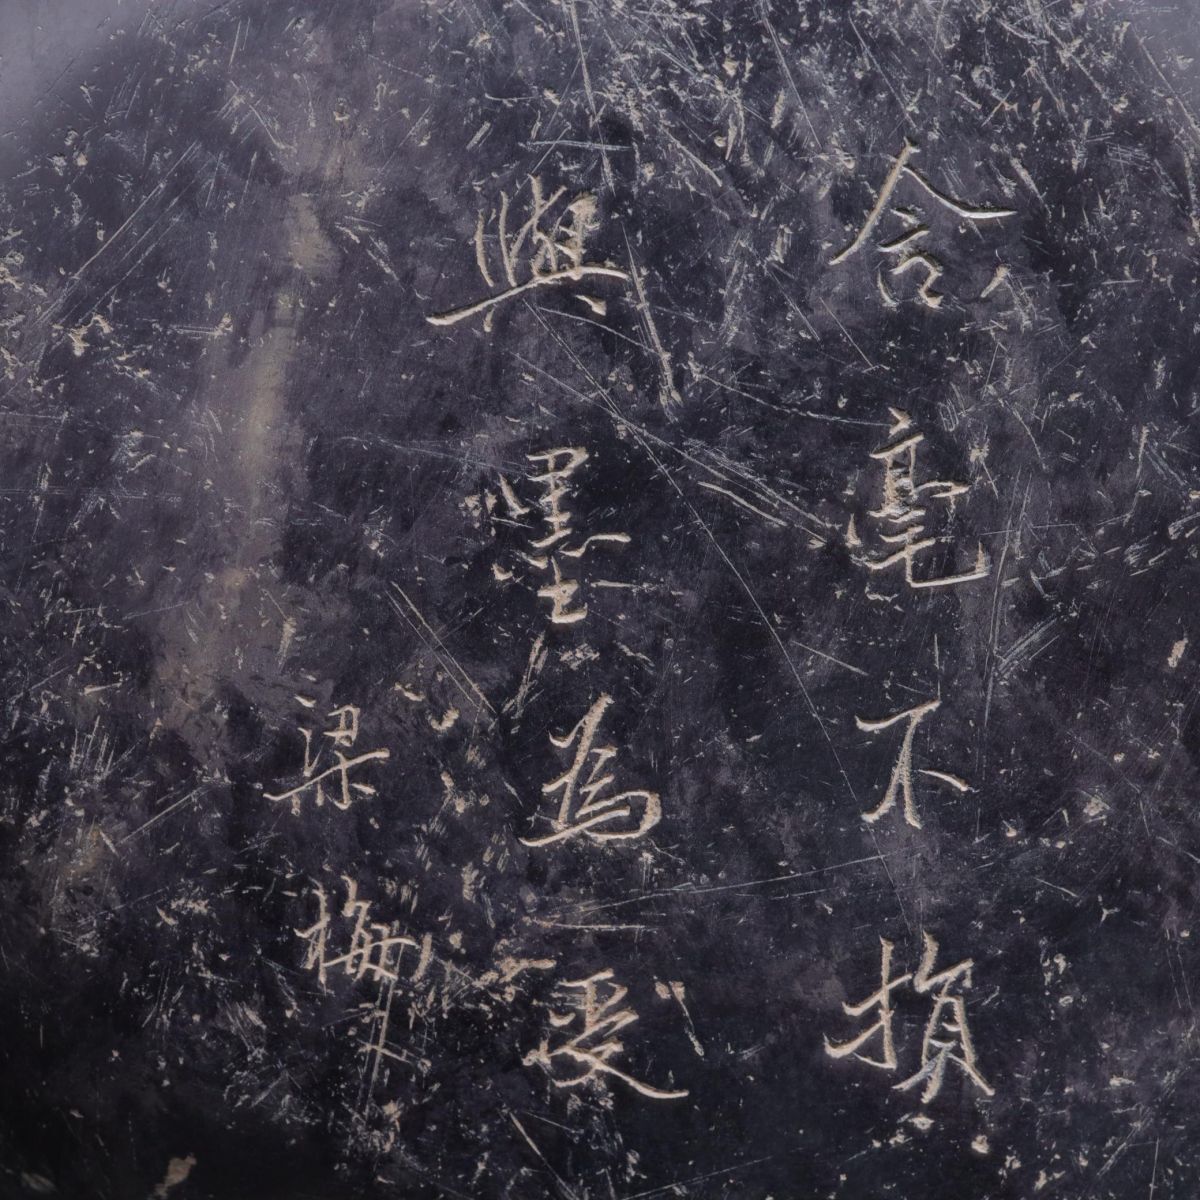 含毫不損
與墨為愛
梁梅